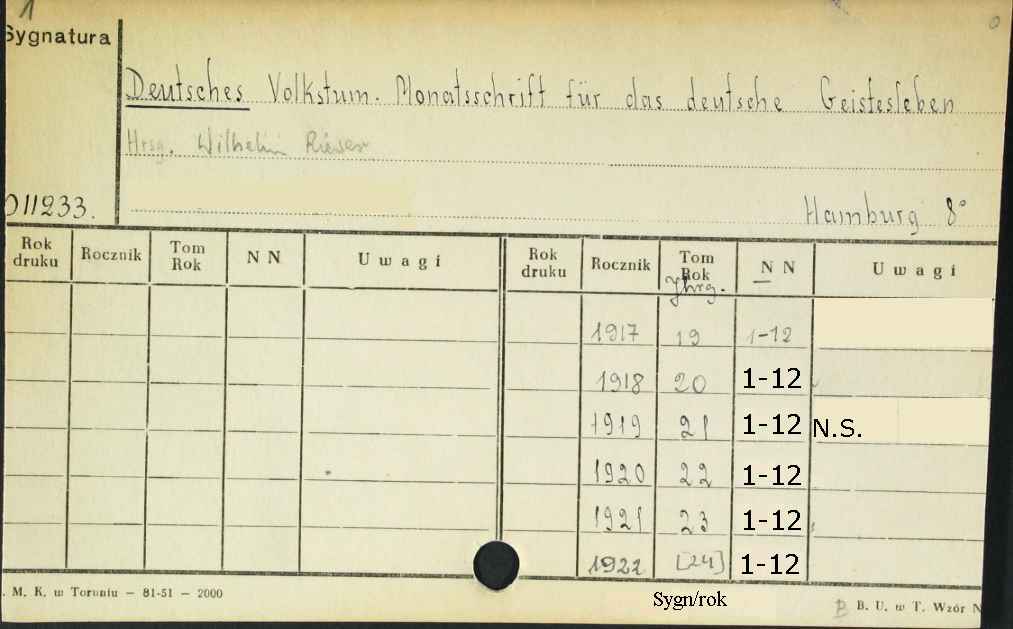 1
Sygnatura
Deutsches Volkstum. Monatsschrift für das deutsche Geistesleben
Hrsg. Wilhelm
011233.
Hamburg 8°
Rok druku Rocznik Tom Rok N N Uwagi Rok druku Rocznik Tom Rok N N Uwagi
Jhrg.
1917 19 1-12
1918 20 1-12
1919 21 1-12 N.S.
1920 22 1-12
1921 23 1-12
1922 [24] 1-12
. M. K. w Toruniu — 81-51 — 2000
Sygn/rok
B. U. w T. Wzór N